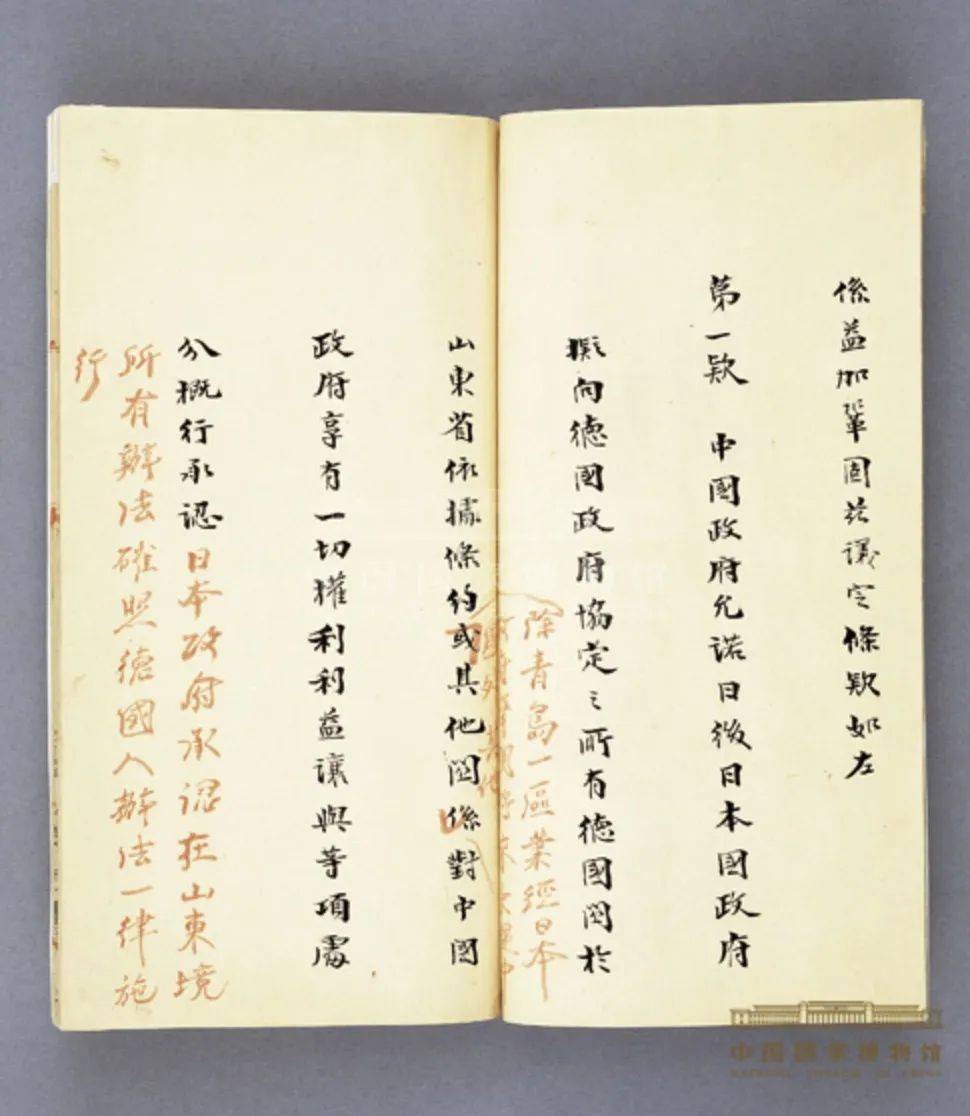 係益加鞏固茲議定條欵如左
第一欵 中國政府允諾日後日本國政府
擬向德國政府協定之所有德國関於
除青島一區業經日本
山東省依據條約或其他関係對中國
政府享有一切權利利益讓與等項處
分概行承認日本政府承認在山東境
所有辦法確照德國人辦法一律施
行
中国国家博物馆
NATIONAL MUSEUM OF CHINA